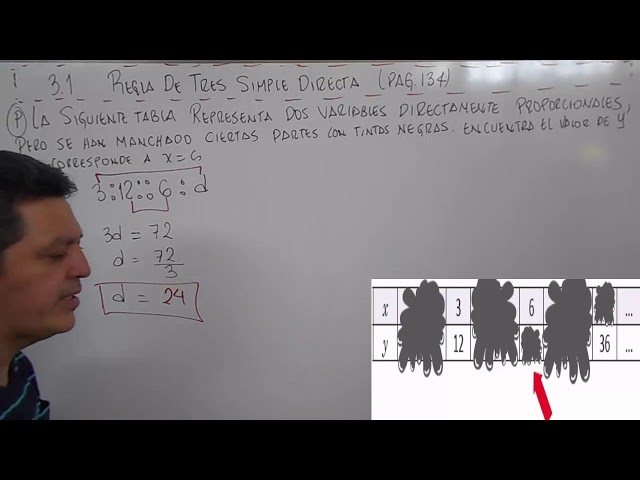 3.1 REGLA DE TRES SIMPLE DIRECTA (PAG. 134)
P) LA SIGUIENTE TABLA REPRESENTA DOS VARIABLES DIRECTAMENTE PROPORCIONALES,
PERO SE HAN MANCHADO CIERTAS PARTES CON TINTAS NEGRAS. ENCUENTRA EL VALOR DE Y
CORRESPONDE A X = 6
3:12::6:d
3d = 72
d = 72/3
d = 24
x 3 6 ...
y 12 36 ...